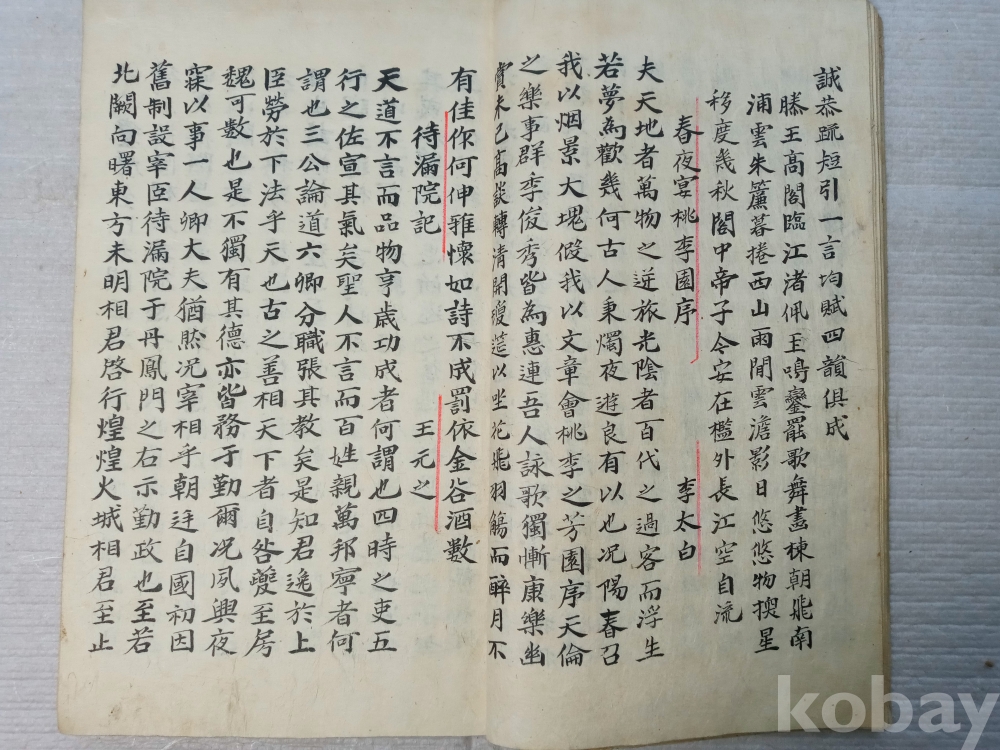 誠恭疏短引一言均賦四韻俱成
滕王高閣臨江渚佩玉鳴鑾罷歌舞畫棟朝飛南
浦雲朱簾暮捲西山雨閒雲潭影日悠悠物換星
移度幾秋閣中帝子今安在檻外長江空自流
春夜宴桃李園序 李太白
夫天地者萬物之逆旅光陰者百代之過客而浮生
若夢為歡幾何古人秉燭夜遊良有以也况陽春召
我以烟景大塊假我以文章會桃李之芳園序天倫
之樂事群季俊秀皆為惠連吾人詠歌獨慚康樂幽
賞未已高談轉清開瓊筵以坐花飛羽觴而醉月不
有佳作何伸雅懷如詩不成罰依金谷酒數
待漏院記 王元之
天道不言而品物亨歲功成者何謂也四時之吏五
行之佐宣其氣矣聖人不言而百姓親萬邦寧者何
謂也三公論道六卿分職張其教矣是知君逸於上
臣勞於下法乎天也古之善相天下者自咎夔至房
魏可數也是不獨有其德亦皆務于勤爾况夙興夜
寐以事一人卿大夫猶然况宰相乎朝廷自國初因
舊制設宰臣待漏院于丹鳳門之右示勤政也至若
北闕向曙東方未明相君啓行煌煌火城相君至止
kobay